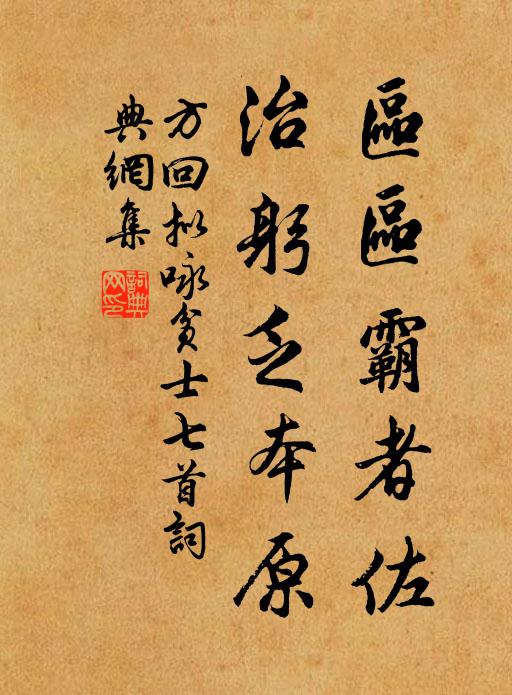 區區霸者佐
治躬乏本原
方回拟咏貧士七首詞
典網集
詞典網印